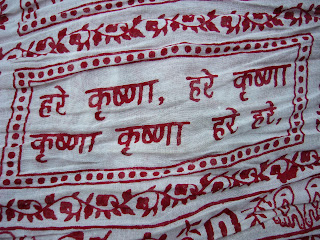 हरे कृष्णा, हरे कृष्णा
कृष्णा कृष्णा हरे हरे,